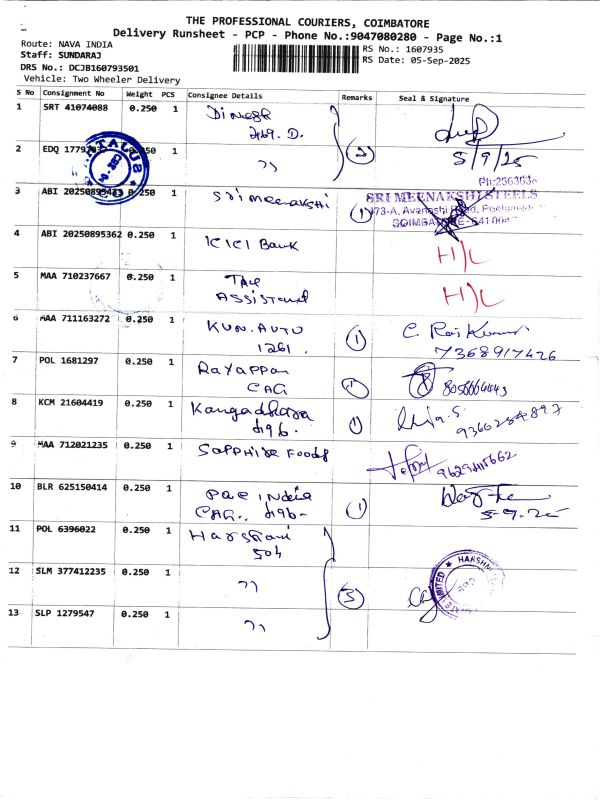 THE PROFESSIONAL COURIERS, COIMBATORE
Delivery Runsheet - PCP - Phone No.:9047080280 - Page No.:1
Route: NAVA INDIA
RS No.: 1607935
Staff: SUNDARAJ
RS Date: 05-Sep-2025
DRS No.: DCJB160793501
Vehicle: Two Wheeler Delivery
S No Consignment No Weight PCS Consignee Details Remarks Seal & Signature
1 SRT 41074088 0.250 1 Dinesh
2 EDQ 0.250 1 ,, 2 5/9/25
Ph:
3 ABI 0.250 1 Sri Meenakshi 1 SRI MEENAKSHI STEELS
4 ABI 20250895362 0.250 1 ICICI Bank H/L
5 MAA 710237667 0.250 1 Tax
Assistant H/L
6 MAA 711163272 0.250 1 KUN.AUTO
1261. 1 C. Raj Kumar
7368917426
7 POL 1681297 0.250 1 Rayappan
CAG 1
8 KCM 21604419 0.250 1 1
9 MAA 712021235 0.250 1 Sapphire Foods
10 BLR 625150414 0.250 1 India
CAG.. 1
11 POL 6396022 0.250 1 Harshani
504
12 SLM 377412235 0.250 1 ,, 3
13 SLP 1279547 0.250 1 ,,